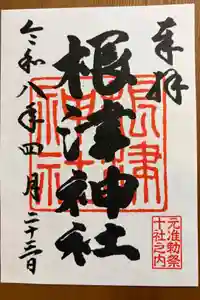 奉拝
根津神社
根津神社
令和八年四月二十三日
元准勅祭
十社之内